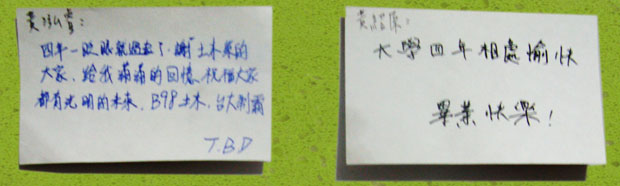 黃
四年一眨眼就過去了,謝〃土木系的
大家,給我滿滿的回憶,祝福大家
都有光明的未來,B98土木,台大制霸
T.B.D
黃
大學四年相處愉快
畢業快樂!